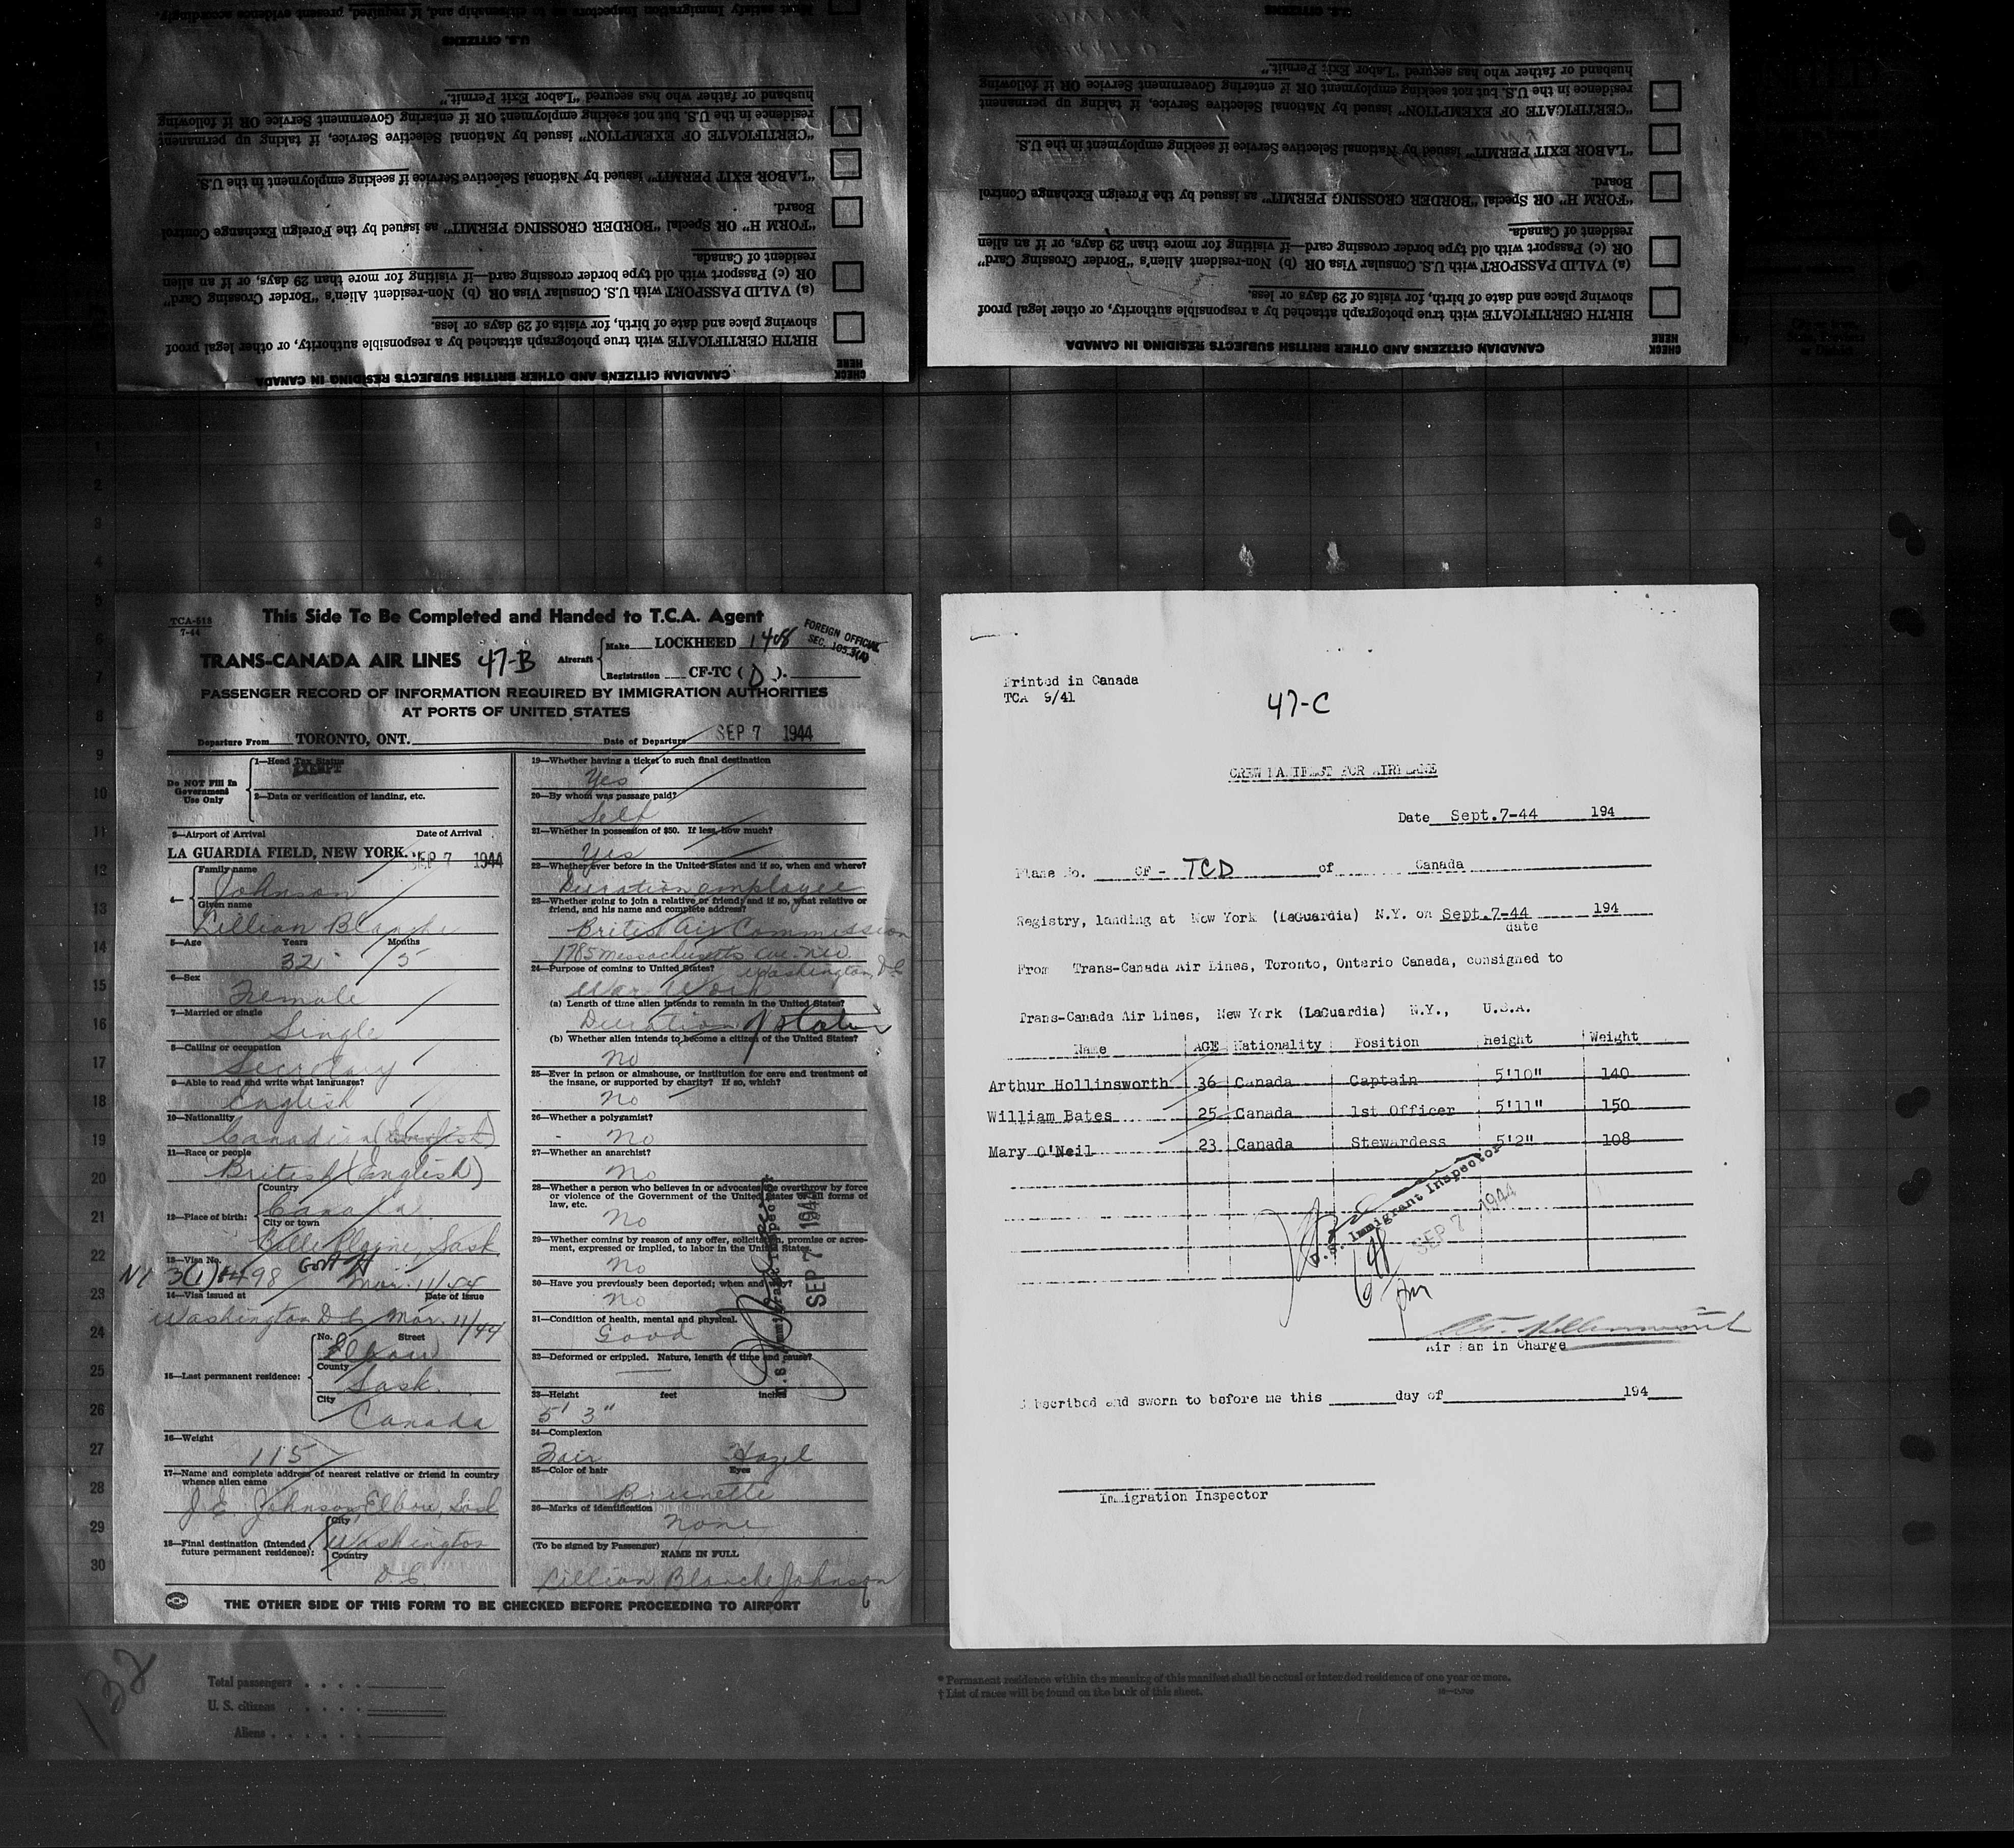 Most satisfy Immigration Inspectors as to citizenship and, if required, present evidence accordingly.
U.S. CITIZENS
husband or father who has secured "Labor Exit Permit."
residence in the U.S. but not seeking employment OR if entering Government Service OR if following
"CERTIFICATE OF EXEMPTION" issued by National Selective Service, if taking up permanent
"LABOR EXIT PERMIT" issued by National Selective Service if seeking employment in the U.S.
Board.
"FORM H" OR Special "BORDER CROSSING PERMIT" as issued by the Foreign Exchange Control
resident of Canada.
OR (c) Passport with old type border crossing card—if visiting for more than 29 days, or if an alien
(a) VALID PASSPORT with U.S. Consular Visa OR (b) Non-resident Alien's "Border Crossing Card"
showing place and date of birth, for visits of 29 days or less.
BIRTH CERTIFICATE with true photograph attached by a responsible authority, or other legal proof
CHECK HERE
CANADIAN CITIZENS AND OTHER BRITISH SUBJECTS RESIDING IN CANADA
U.S. CITIZENS
husband or father who has secured "Labor Exit Permit."
residence in the U.S. but not seeking employment OR if entering Government Service OR if following
"CERTIFICATE OF EXEMPTION" issued by National Selective Service, if taking up permanent
"LABOR EXIT PERMIT" issued by National Selective Service if seeking employment in the U.S.
Board.
"FORM H" OR Special "BORDER CROSSING PERMIT" as issued by the Foreign Exchange Control
resident of Canada.
OR (c) Passport with old type border crossing card—if visiting for more than 29 days, or if an alien
(a) VALID PASSPORT with U.S. Consular Visa OR (b) Non-resident Alien's "Border Crossing Card"
showing place and date of birth, for visits of 29 days or less.
BIRTH CERTIFICATE with true photograph attached by a responsible authority, or other legal proof
CHECK HERE
CANADIAN CITIZENS AND OTHER BRITISH SUBJECTS RESIDING IN CANADA
1
2
3
4
5
6
7
8
9
10
11
12
13
14
15
16
17
18
19
20
21
22
23
24
25
26
27
28
29
30
TCA-518
7-44
This Side To Be Completed and Handed to T.C.A. Agent
TRANS-CANADA AIR LINES 47-B
Aircraft
Make LOCKHEED 1408
Registration CF-TC ( D ).
FOREIGN OFFICIAL
SEC. 105.3(A)
PASSENGER RECORD OF INFORMATION REQUIRED BY IMMIGRATION AUTHORITIES
AT PORTS OF UNITED STATES
Departure From TORONTO, ONT.
Date of Departure SEP 7 1944
Do NOT Fill In
Government
Use Only
1—Head Tax Status
EXEMPT
2—Data or verification of landing, etc.
3—Airport of Arrival Date of Arrival
LA GUARDIA FIELD, NEW YORK. SEP 7 1944
4—
Family name
Johnson
Given name
Lillian Blanche
5—Age Years Months
32 5
6—Sex
Female
7—Married or single
Single
8—Calling or occupation
Secretary
9—Able to read and write what languages?
English
10—Nationality
Canadian (English)
11—Race or people
British (English)
12—Place of birth:
Country
Canada
City or town
Belle Plaine, Sask
13—Visa No. Gov't
3(1) 498 Mar. 11/44
14—Visa issued at Date of issue
Washington D.C. Mar. 11/44
15—Last permanent residence:
No. Street
Elbow
County
Sask.
City
Canada
16—Weight
115
17—Name and complete address of nearest relative or friend in country
whence alien came
J. E. Johnson, Elbow, Sask
18—Final destination (Intended
future permanent residence):
City
Washington
Country
D.C.
19—Whether having a ticket to such final destination
Yes
20—By whom was passage paid?
Self
21—Whether in possession of $50. If less, how much?
Yes
22—Whether ever before in the United States and if so, when and where?
Duration employee
23—Whether going to join a relative or friend; and if so, what relative or
friend, and his name and complete address?
British Air Commission
1785 Massachusetts Ave. N.W.
Washington, D.C.
24—Purpose of coming to United States?
War Work
(a) Length of time alien intends to remain in the United States?
Duration of status
(b) Whether alien intends to become a citizen of the United States?
No
25—Ever in prison or almshouse, or institution for care and treatment of
the insane, or supported by charity? If so, which?
No
26—Whether a polygamist?
No
27—Whether an anarchist?
No
28—Whether a person who believes in or advocates the overthrow by force
or violence of the Government of the United States or all forms of
law, etc.
No
29—Whether coming by reason of any offer, solicitation, promise or agree-
ment, expressed or implied, to labor in the United States.
No
30—Have you previously been deported; when and why?
No
31—Condition of health, mental and physical.
Good
32—Deformed or crippled. Nature, length of time and cause?
33—Height feet inches
5' 3"
34—Complexion
Fair Hazel
35—Color of hair Eyes
Brunette
36—Marks of identification
None
(To be signed by Passenger)
NAME IN FULL
Lillian Blanche Johnson
U.S. Immigrant Inspector
SEP 7 1944
THE OTHER SIDE OF THIS FORM TO BE CHECKED BEFORE PROCEEDING TO AIRPORT
Printed in Canada
TCA 9/41
47-C
CREW MANIFEST FOR AIRPLANE
Date Sept.7-44 194
Plane No. CF - TCD of Canada
Registry, landing at New York (LaGuardia) N.Y. on Sept.7-44 194
date
From Trans-Canada Air Lines, Toronto, Ontario Canada, consigned to
Trans-Canada Air Lines, New York (LaGuardia) N.Y., U.S.A.
Name AGE Nationality Position Height Weight
Arthur Hollinsworth 36 Canada Captain 5'10" 140
William Bates 25 Canada 1st Officer 5'11" 150
Mary O'Neil 23 Canada Stewardess 5'2" 108
U.S. Immigrant Inspector
SEP 7 1944
Air Man in Charge
Subscribed and sworn to before me this day of 194
Immigration Inspector
138
Total passengers
U. S. citizens
Aliens
* Permanent residence within the meaning of this manifest shall be actual or intended residence of one year or more.
† List of races will be found on the back of this sheet.